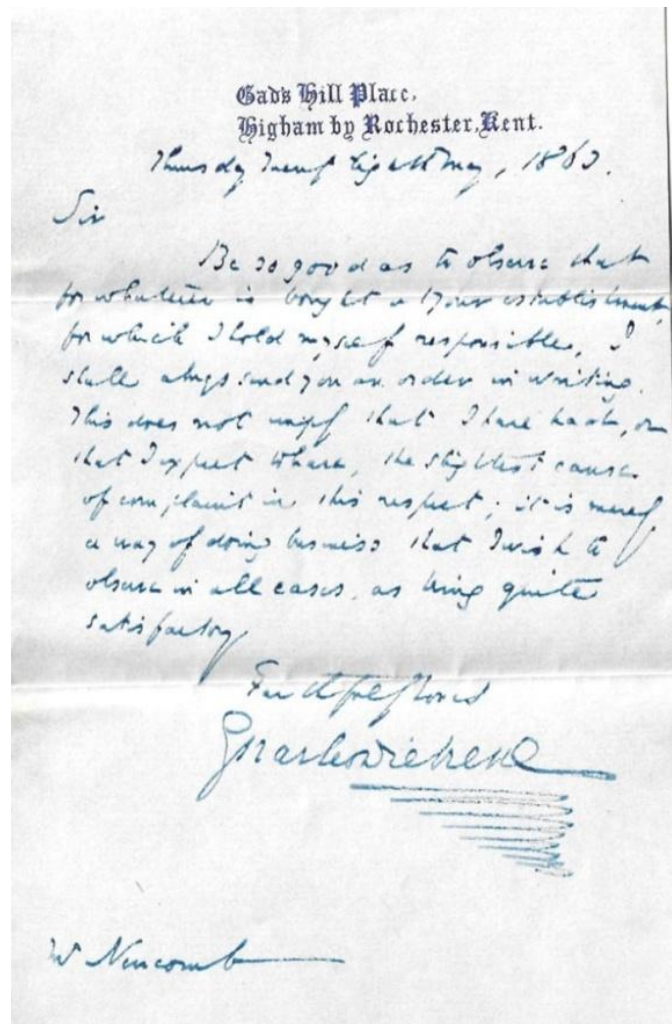 Gad's Hill Place,
Higham by Rochester, Kent.
Thursday Twenty Eighth May, 1863.
Sir
Be so good as to observe that
for whatever is bought at your establishment
for which I hold myself responsible, I
shall always send you an order in writing.
This does not imply that I have had, or
that I expect to have, the slightest cause
of complaint in this respect; it is merely
a way of doing business that I wish to
observe in all cases, as being quite
satisfactory.
Faithfully Yours
Charles Dickens
Mr Newcomb